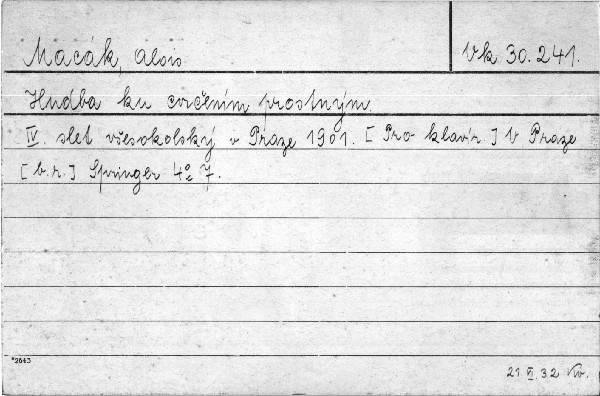 Macák, Alois
Vk 30.241.
Hudba ku cvičením prostným
IV. slet všesokolský v Praze 1901. [Pro klavír.] V Praze
[b.r.] Springer 4° 7.
*2643
21 VI. 32